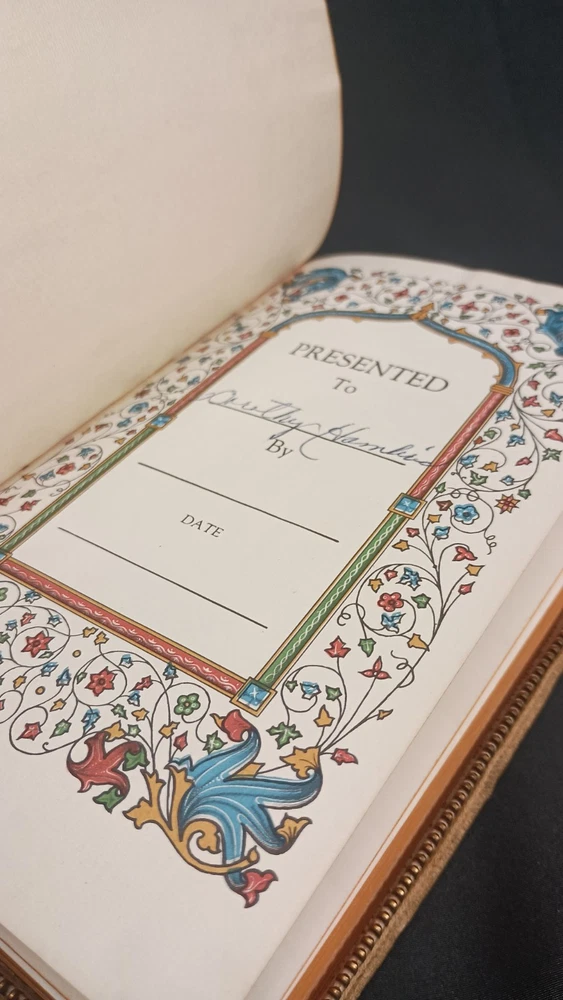 PRESENTED
To
Dorothy Hamkins
By
DATE